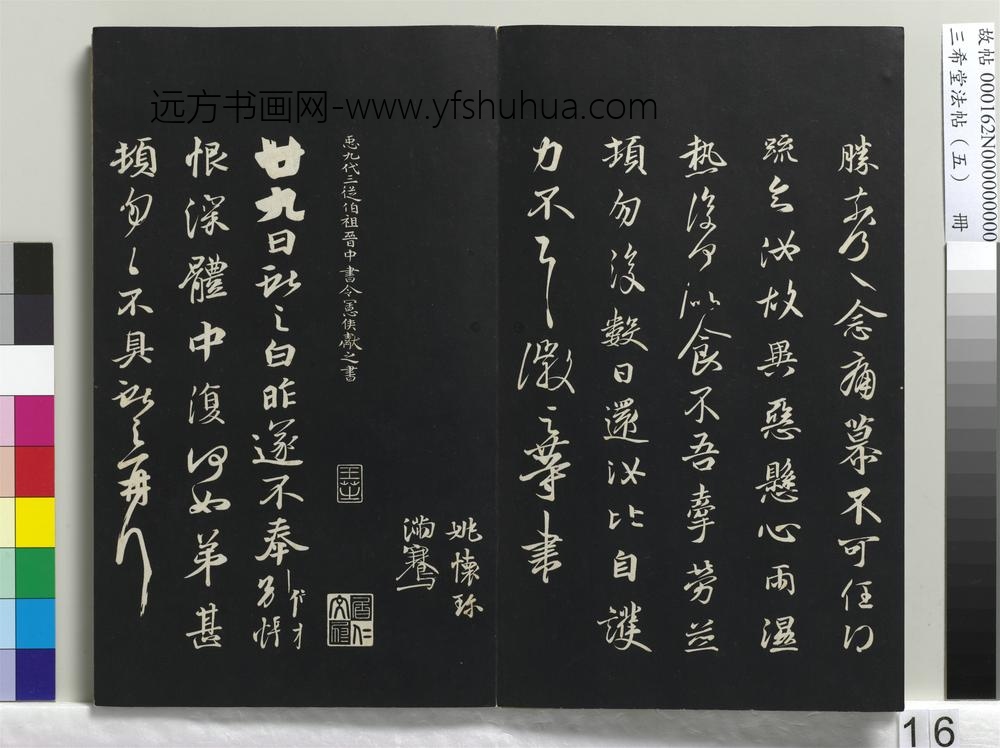 远方书画网-www.yfshuhua.com
故帖 000162N000000000
三希堂法帖（五） 冊
勝奈何〻念痛慕不可任得
疏知汝故異惡懸心雨濕
熱復何似食不吾牽勞並
頓勿復數日還汝比自護
力不具徽之等書
姚懷珍
滿騫
𢘑九代三從伯祖晉中書令憲侯獻之書
廿九日獻之白昨遂不奉別悵
恨深體中復何如弟甚
頓匆〻不具獻之再拜
16